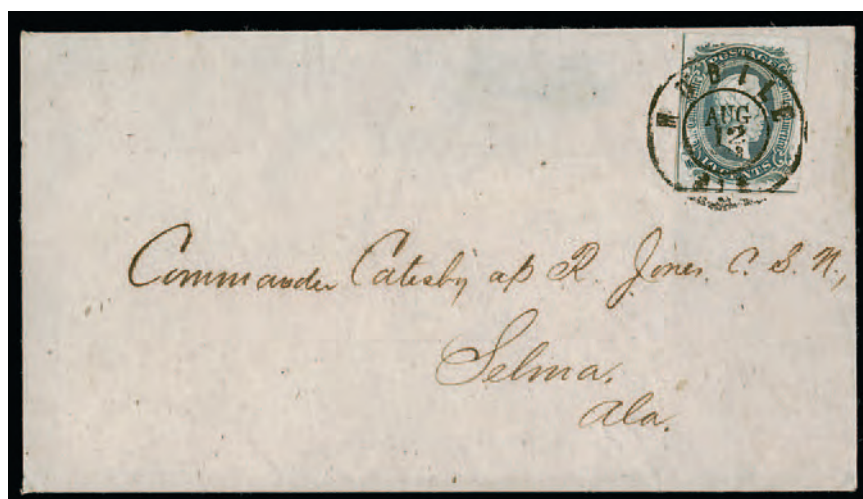 POSTAGE
MOBILE
AUG
12
ALA
CENTS
Commander Catesby ap R. Jones. C. S. N.,
Selma.
Ala.